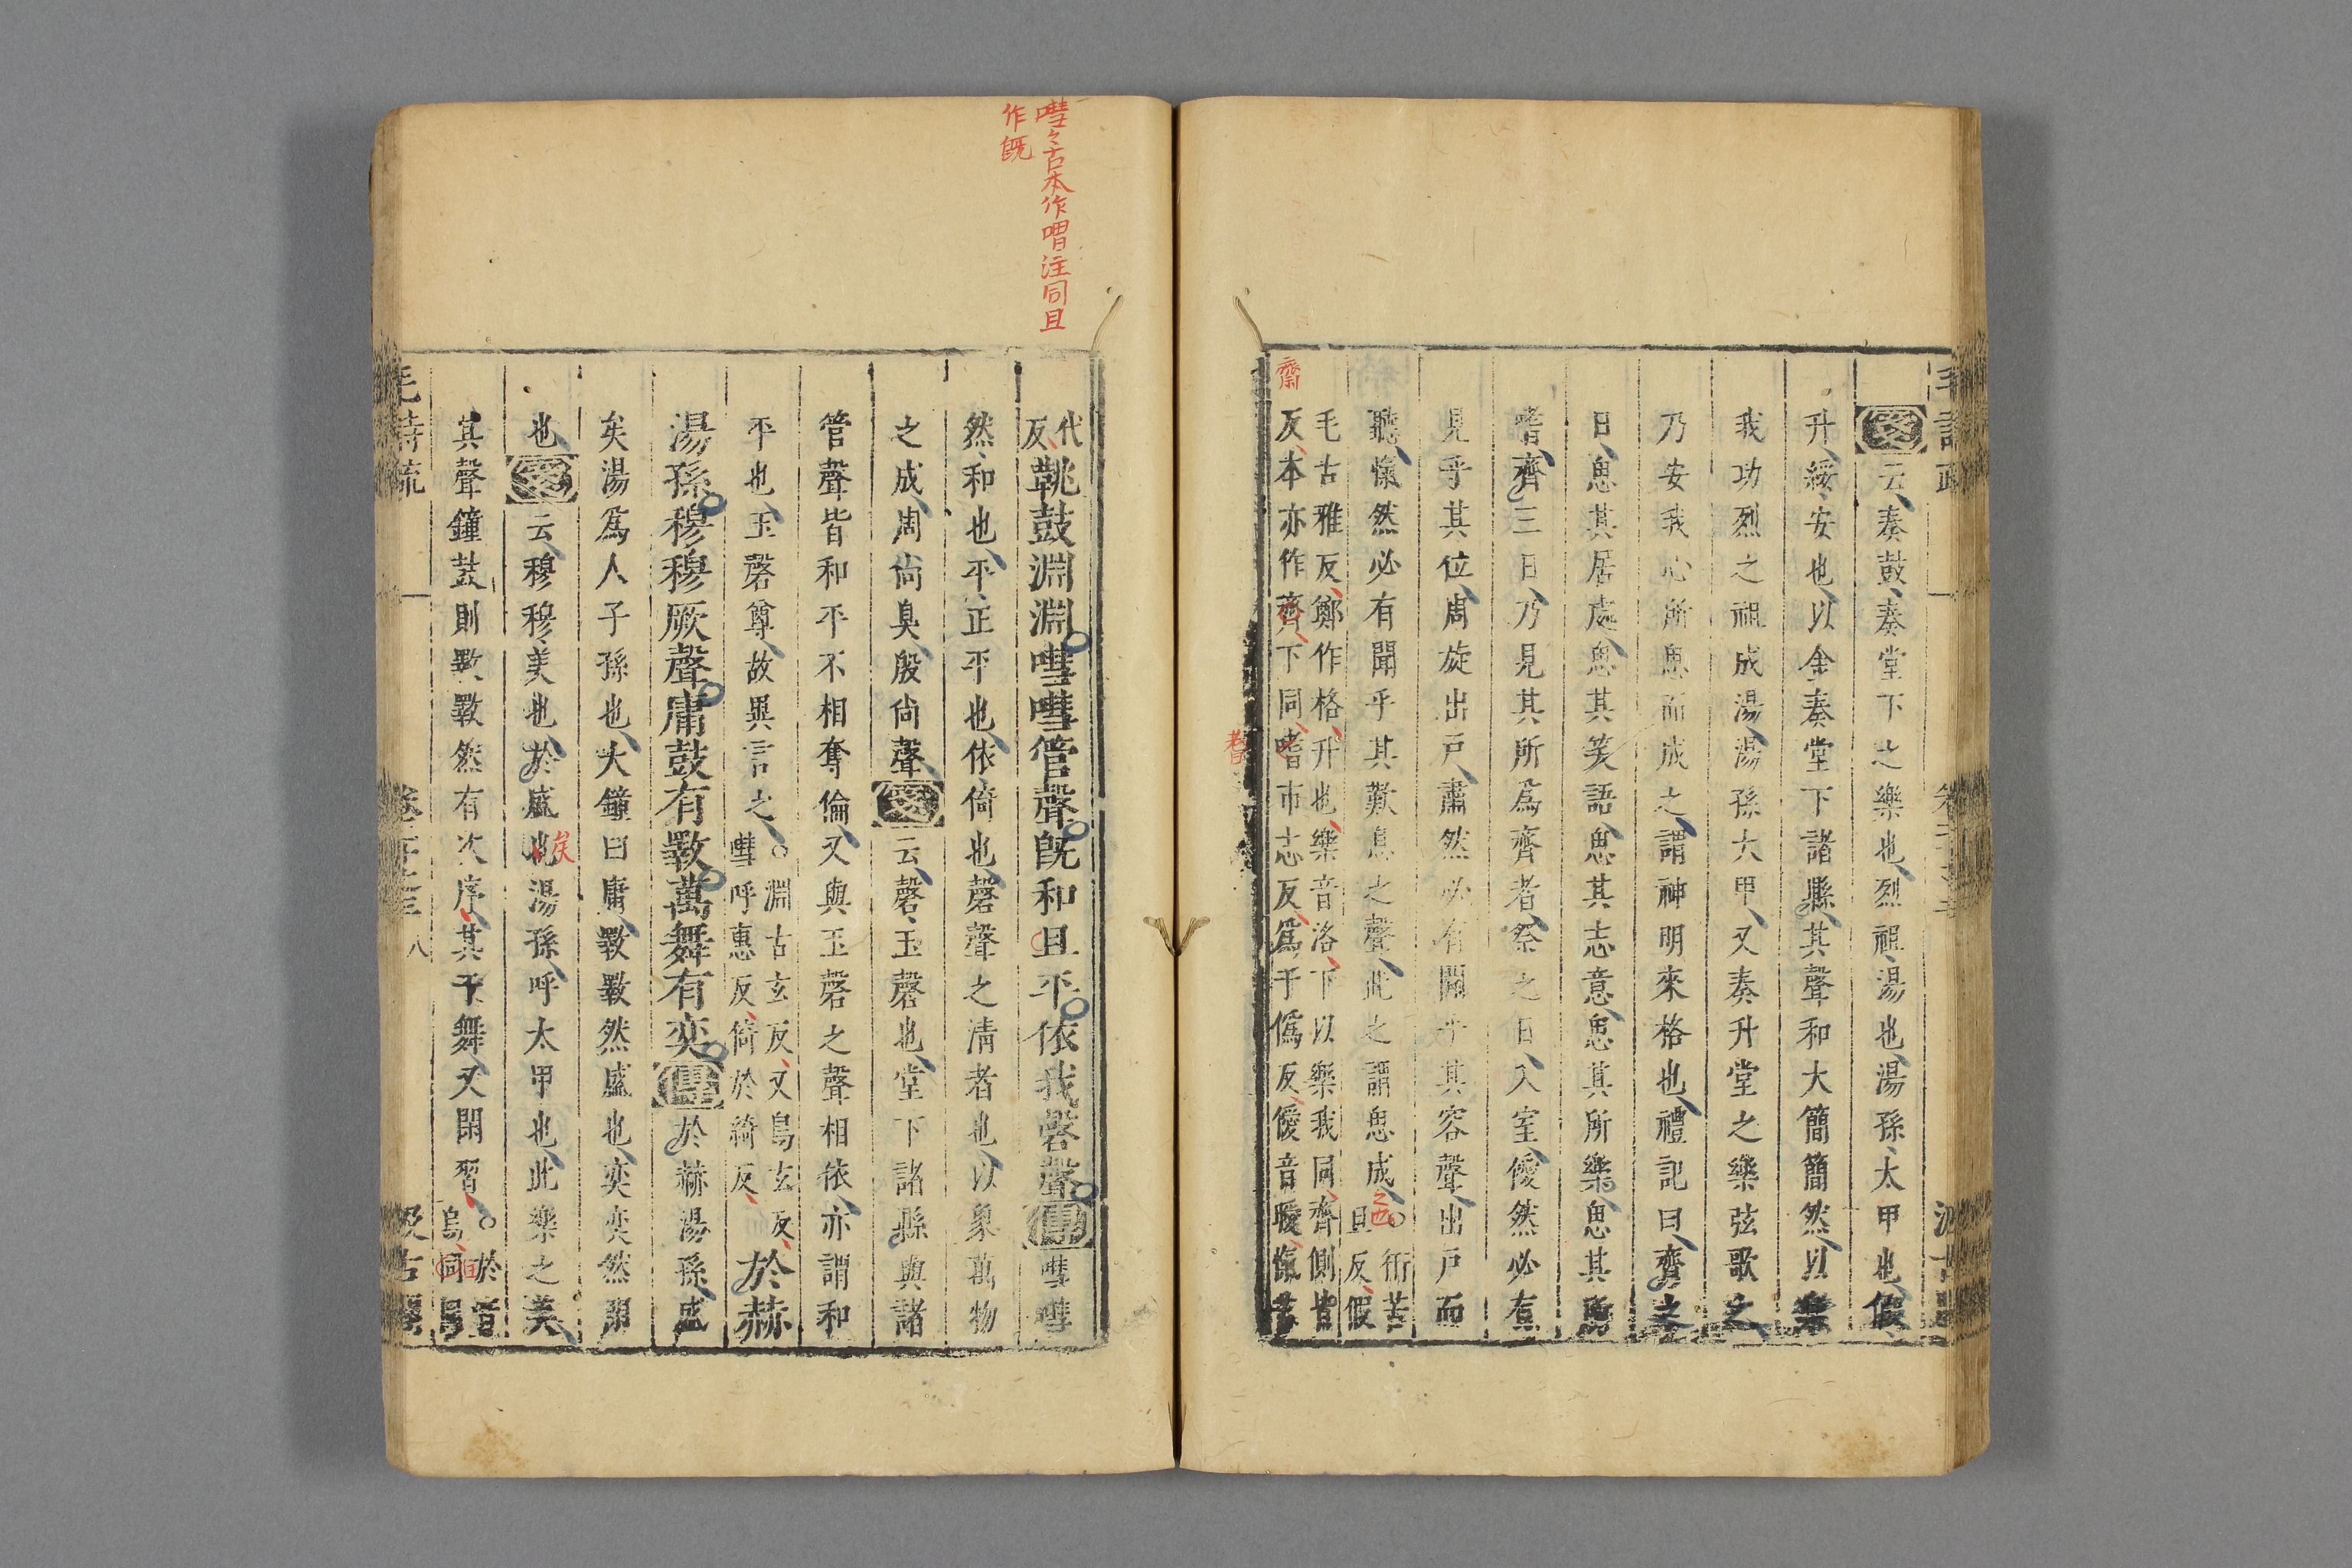 箋云奏鼓奏堂下之樂也烈祖湯也湯孫太甲也假
升綏安也以金奏堂下諸縣其聲和大簡簡然以樂
我功烈之祖成湯湯孫太甲又奏升堂之樂弦歌之
乃安我心所思而成之謂神明來格也禮記曰齊之
日思其居處思其笑語思其志意思其所樂思其所
嗜齊三日乃見其所爲齊者祭之日入室僾然必有
見乎其位周旋出戶肅然必有聞乎其容聲出戶而
聽愾然必有聞乎其歎息之聲此之謂思成
之也
○衎苦
旦反假
毛古雅反鄭作格升也樂音洛下以樂我同齊側皆
反本亦作齊下同嗜市志反爲于僞反僾音曖愾苦
齋
耆
嘒々古本作嘒注同且
作既
代
反
鞉鼓淵淵嘒嘒管聲既和且平依我磬聲傳嘒嘒
然和也平正平也依倚也磬聲之淸者也以象萬物
之成周尙臭殷尙聲箋云磬玉磬也堂下諸縣與諸
管聲皆和平不相奪倫又與玉磬之聲相依亦謂和
平也玉磬尊故異言之
○淵古玄反又烏玄反
嘒呼惠反倚於綺反
於赫
湯孫穆穆厥聲庸鼓有斁萬舞有奕傳於赫湯孫盛
矣湯爲人子孫也大鐘曰庸斁斁然盛也奕奕然閑
也箋云穆穆美也於盛也湯孫呼太甲也此樂之美
矣
其聲鐘鼓則斁斁然有次序其干舞又閑習
○於音
烏同
毛詩疏
卷二十之三
八
汲古閣